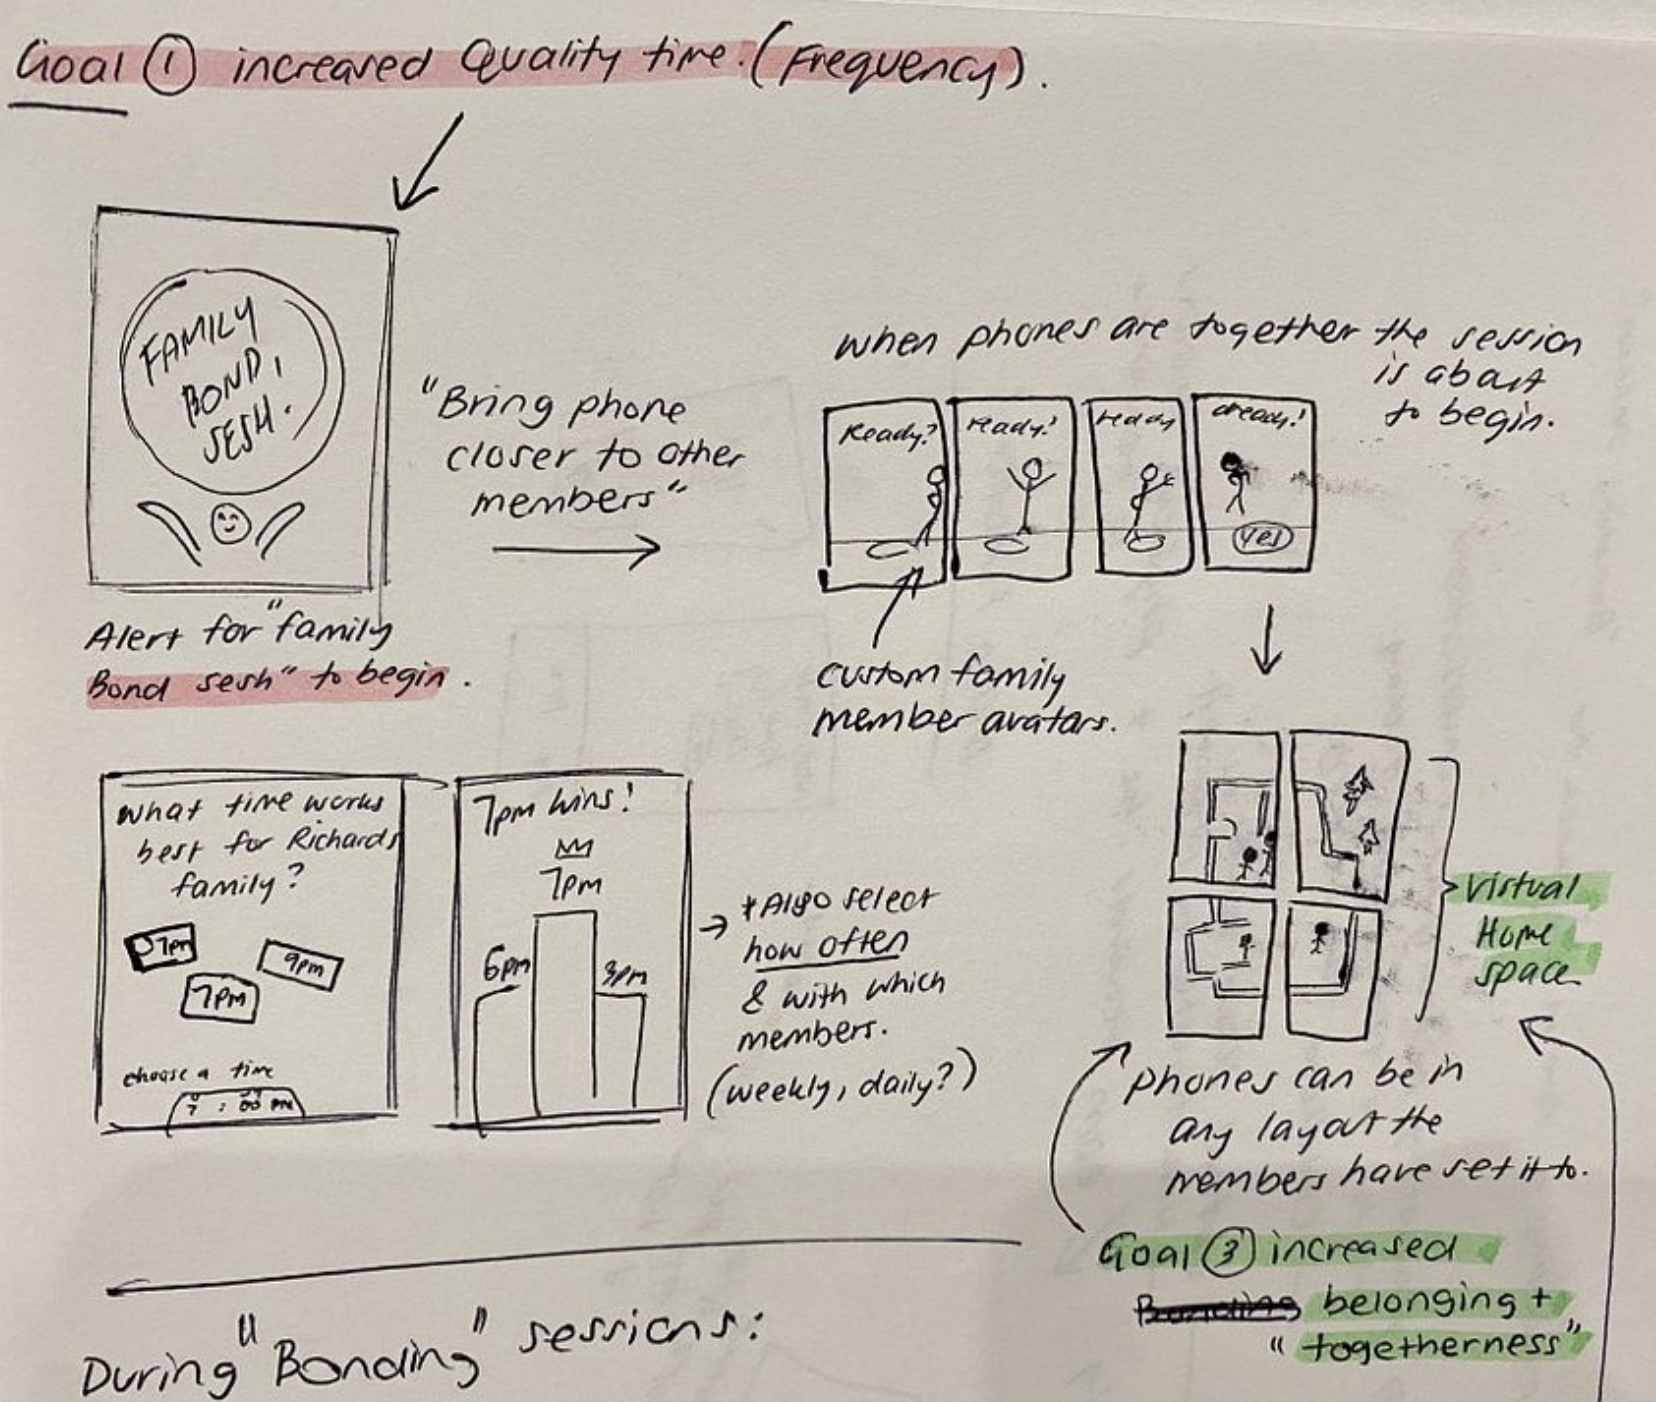 Goal ① increased Quality time. (Frequency).
FAMILY
BOND,
SESH.
Alert for "family
Bond sesh" to begin.
"Bring phone
closer to other
members"
when phones are together the session
is about
to begin.
Ready?
ready?
ready
ready!
Yes
custom family
member avatars.
What time works
best for Richards
family?
7pm
7pm
9pm
choose a time
7 : 00 PM
7pm Wins!
7pm
6pm
→ *Also select
how often
& with which
members.
(weekly, daily?)
Virtual
Home
space
phones can be in
any layout the
members have set it to.
Goal ③ increased
Bonding belonging +
"togetherness"
During "Bonding" sessions: